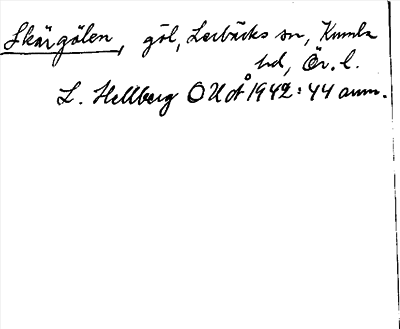 Skärgölen, göl, Lerbäcks sn, Kumla
hd, Ör. l.
L. Hellberg OUÅ 1942:44 anm.